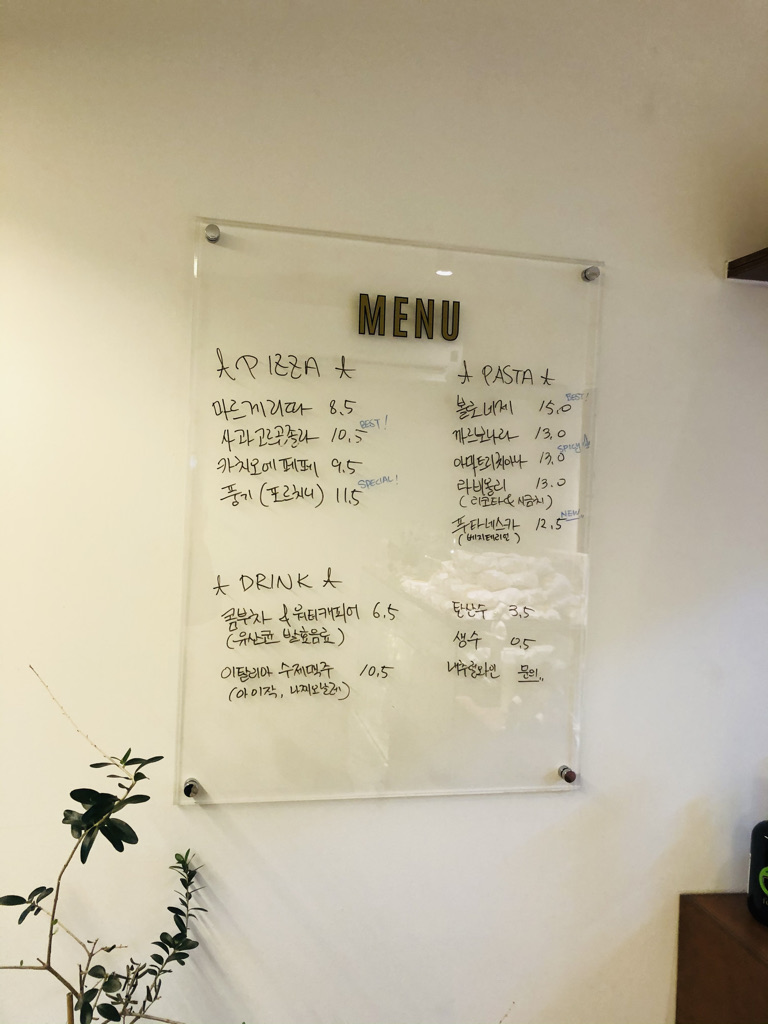 MENU
PIZZA
마르게리따 8.5
사과고르곤졸라 10.5 BEST!
카치오에페페 9.5
풍기(포르치니) 11.5 SPECIAL!
PASTA
볼로네제 15.0 BEST!
까르보나라 13.0
아마트리치아나 13.0 SPICY
라비올리 13.0
(리코타&시금치)
푸타네스카 12.5 NEW
(베지테리언)
DRINK
콤부차 & 워터캐피어 6.5
(유산균 발효음료)
이탈리아 수제맥주 10.5
(아이작, 나지오날레)
탄산수 3.5
생수 0.5
내추럴와인 문의..